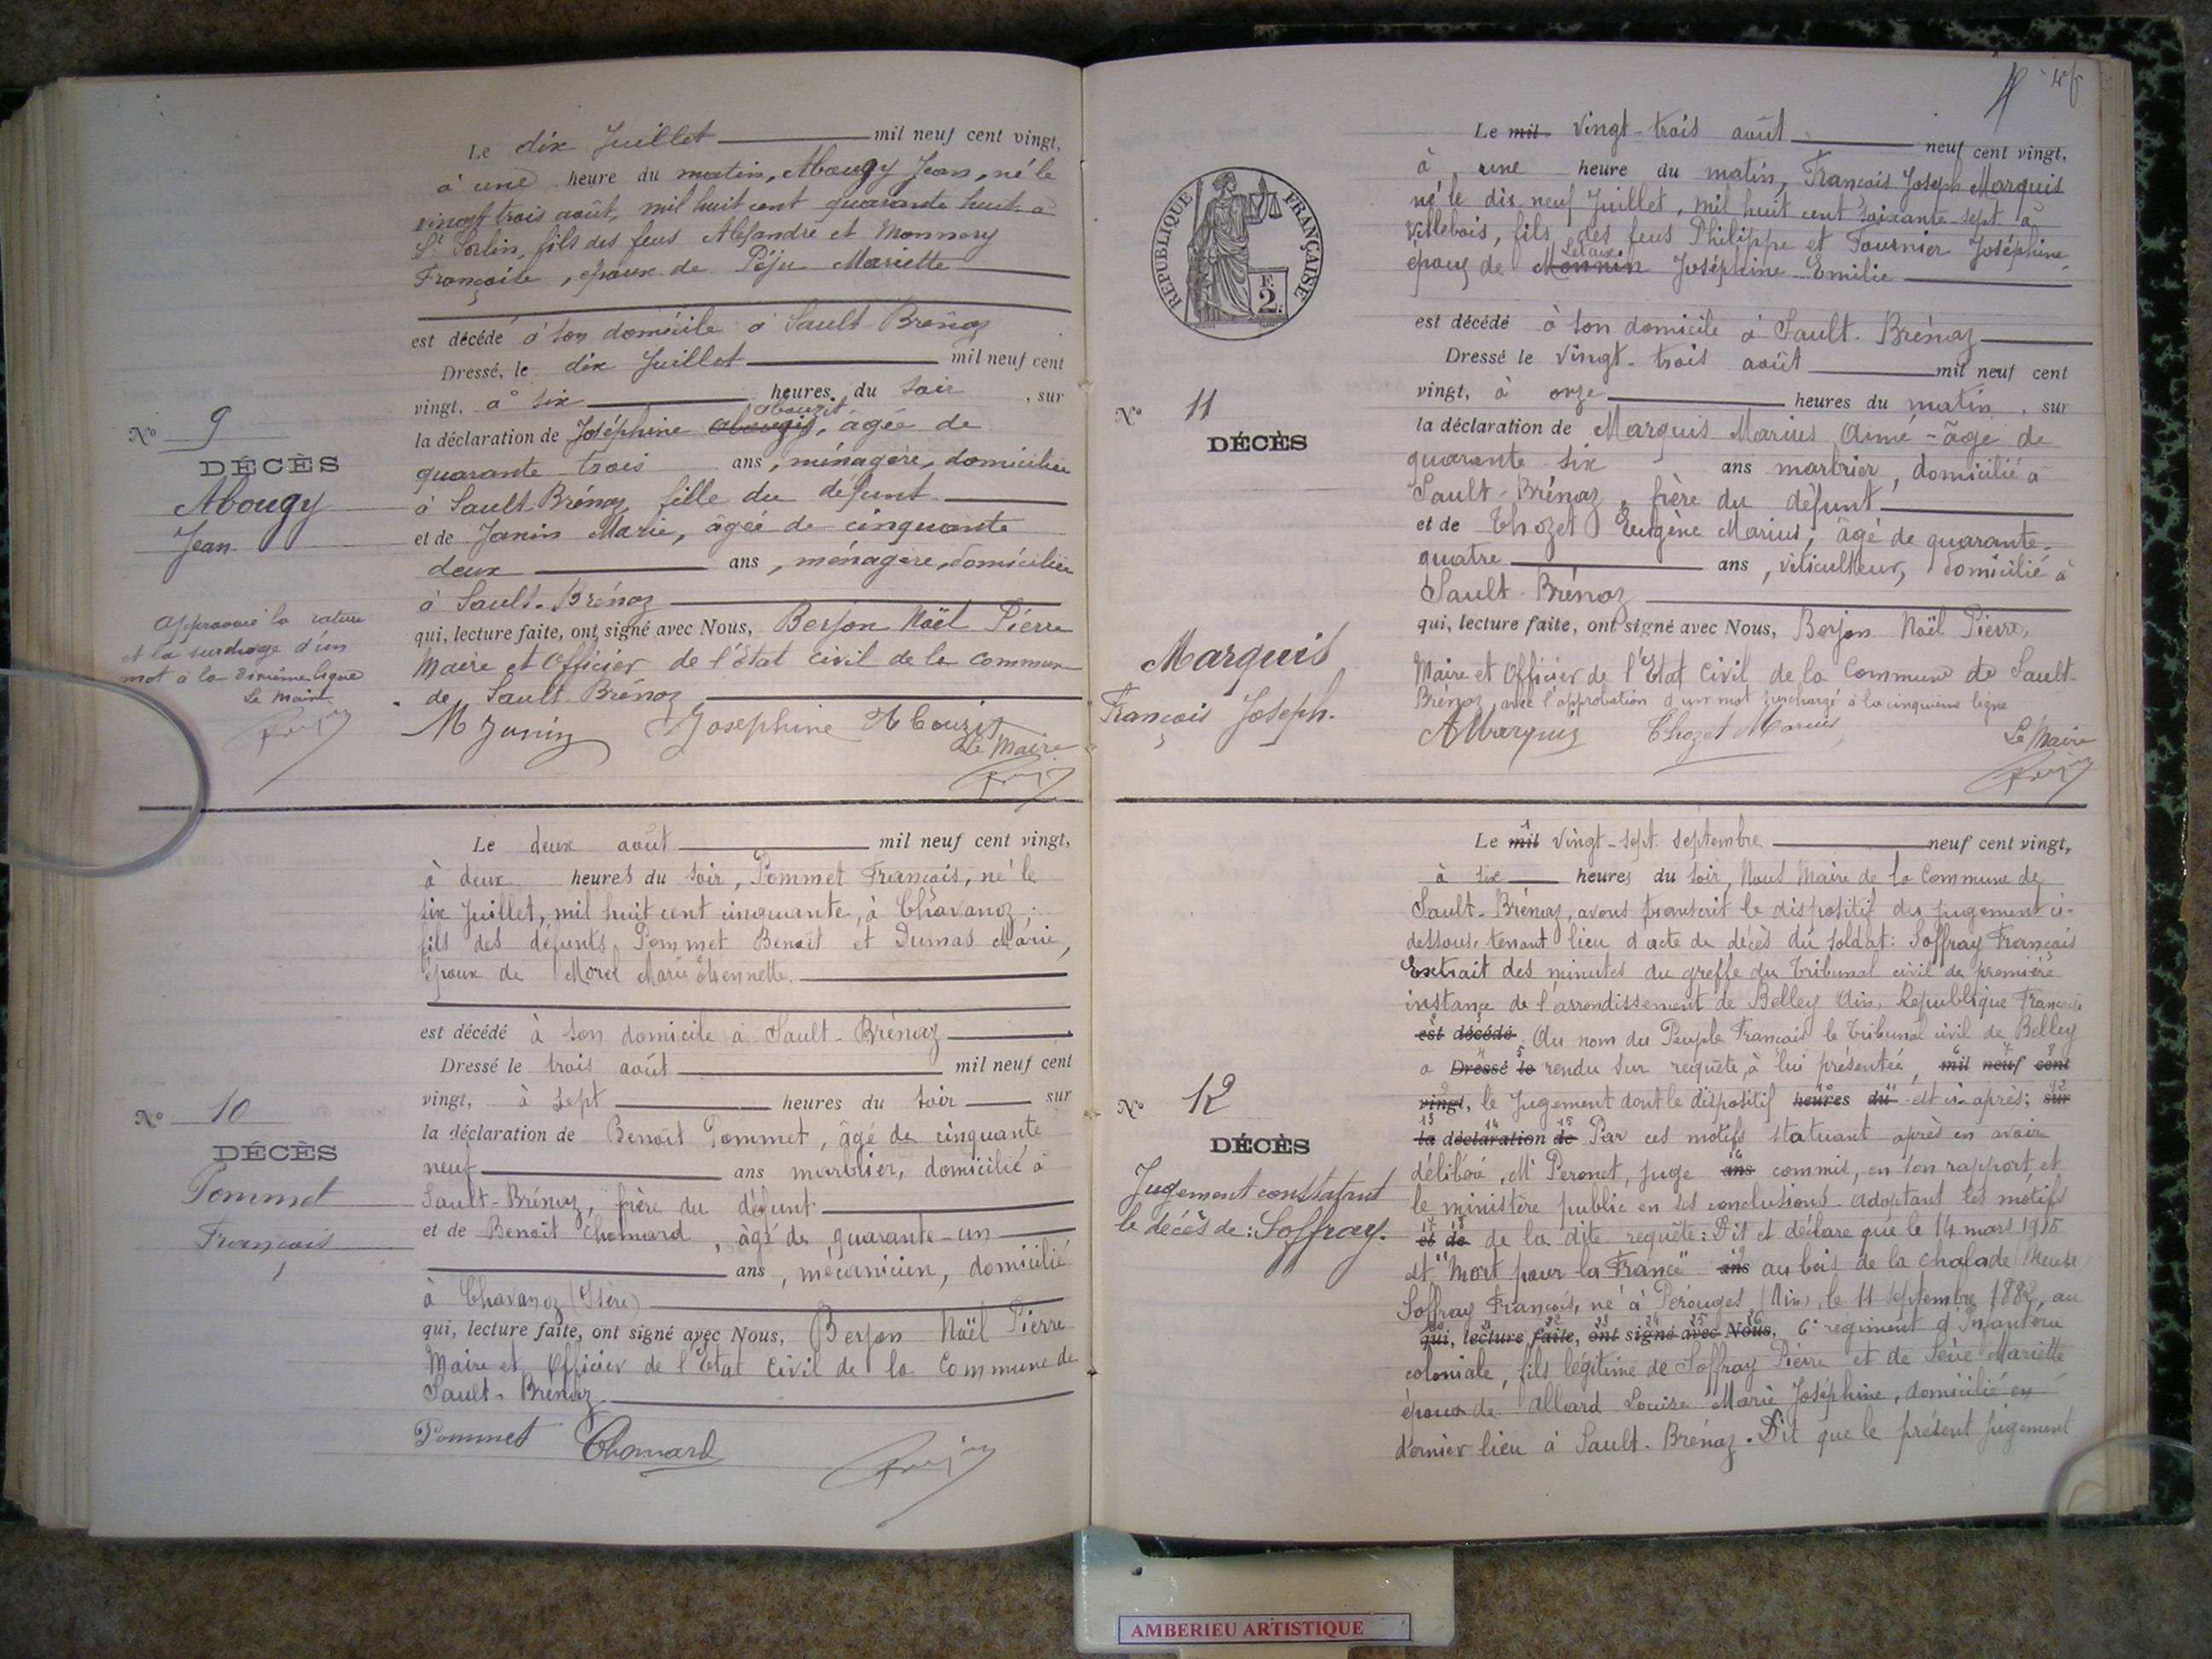 Le dix Juillet mil neuf cent vingt,
à une heure du matin, Abougy Jean, né le
vingt trois août, mil huit cent quarante huit à
St Sorlin, fils des feus Alexandre et Monnery
Françoise, époux de Péju Mariette
est décédé à son domicile à Sault-Brénaz
Dressé, le dix Juillet mil neuf cent
vingt, à six heures du soir, sur
abouzit
la déclaration de Joséphine abougis, âgée de
quarante trois ans, ménagère, domiciliée
à Sault-Brénaz, fille du défunt
et de Janin Marie, âgée de cinquante
deux ans, ménagère, domiciliée
à Sault-Brénaz
qui, lecture faite, ont signé avec Nous, Berjon Noël Pierre
Maire et Officier de l'état civil de la commune
de Sault-Brénaz
M Janin Josephine Abouzit
Le Maire
No 9
DÉCÈS
Abougy
Jean
Approuvé la rature
et la surcharge d'un
mot à la dixième ligne
Le Maire
Le deux août mil neuf cent vingt,
à deux heures du soir, Pommet François, né le
six Juillet, mil huit cent cinquante, à Chavanoz,
fils des défunts Pommet Benoit et Dumas Marie,
époux de Morel Marie Etiennette.
est décédé à son domicile à Sault-Brénaz
Dressé le trois août mil neuf cent
vingt, à sept heures du soir sur
la déclaration de Benoît Pommet, âgé de cinquante
neuf ans marbrier, domicilié à
Sault-Brénaz, frère du défunt
et de Benoît Chomard, âgé de quarante-un
ans, mécanicien, domicilié
à Chavanoz (Isère)
qui, lecture faite, ont signé avec Nous, Berjon Noël Pierre
Maire et Officier de l'Etat Civil de la Commune de
Sault-Brénaz
Pommet Chomard
No 10
DÉCÈS
Pommet
François
Le mil vingt-trois août neuf cent vingt,
à une heure du matin, François Joseph Marquis
né le dix-neuf Juillet, mil huit cent soixante-sept à
Villebois, fils des feus Philippe et Fournier Joséphine,
époux de Monnin Joséphine Emilie
est décédé à son domicile à Sault-Brénaz
Dressé le vingt-trois août mil neuf cent
vingt, à onze heures du matin, sur
la déclaration de Marquis Marius Aimé - âgé de
quarante six ans marbrier, domicilié à
Sault-Brénaz, frère du défunt
et de Thozet Eugène Marius, âgé de quarante-
quatre ans, viticulteur, domicilié à
Sault-Brénaz
qui, lecture faite, ont signé avec Nous, Berjon Noël Pierre,
Maire et Officier de l'Etat Civil de la Commune de Sault-
Brénaz, avec l'approbation d'un mot surchargé à la cinquième ligne
AMarquis Thozet Marius Le Maire
REPUBLIQUE FRANÇAISE
F.
2.
No 11
DÉCÈS
Marquis
François Joseph.
1
Le mil vingt-sept septembre neuf cent vingt,
à six heures du soir, Nous Maire de la Commune de
Sault-Brénaz, avons transcrit le dispositif du jugement ci-
dessous, tenant lieu d'acte de décès du soldat: Soffray François
Extrait des minutes du greffe du Tribunal civil de première
instance de l'arrondissement de Belley Ain, République Française
est décédé Au nom du Peuple Français le Tribunal civil de Belley
a Dressé le rendu sur requête, à lui présentée, mil neuf cent
vingt, le Jugement dont le dispositif heures du est ci-après: sur
la déclaration de Par ces motifs statuant après en avoir
délibéré, Mr Peronet, juge ans commis, en son rapport, et
le ministère public en ses conclusions adoptant les motifs
et de de la dite requête: Dit et déclare que le 14 mars 1915
est "Mort pour la France" ans au bois de la Chalade (Meuse)
Soffray François, né à Pérouges (Ain), le 11 Septembre 1882, au
qui, lecture faite, ont signé avec Nous, 6e régiment d'Infanterie
coloniale, fils légitime de Soffray Pierre et de Sève Mariette
époux de Allard Louise Marie Joséphine, domicilié en
dernier lieu à Sault-Brénaz. Dit que le présent jugement
No 12
DÉCÈS
Jugement constatant
le décès de: Soffray.
AMBERIEU ARTISTIQUE